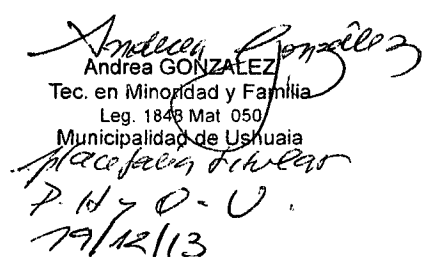 Andrea González
Andrea GONZALEZ
Tec. en Minoridad y Familia
Leg. 1848 Mat 050
Municipalidad de Ushuaia
P. H y O - U.
19/12/13